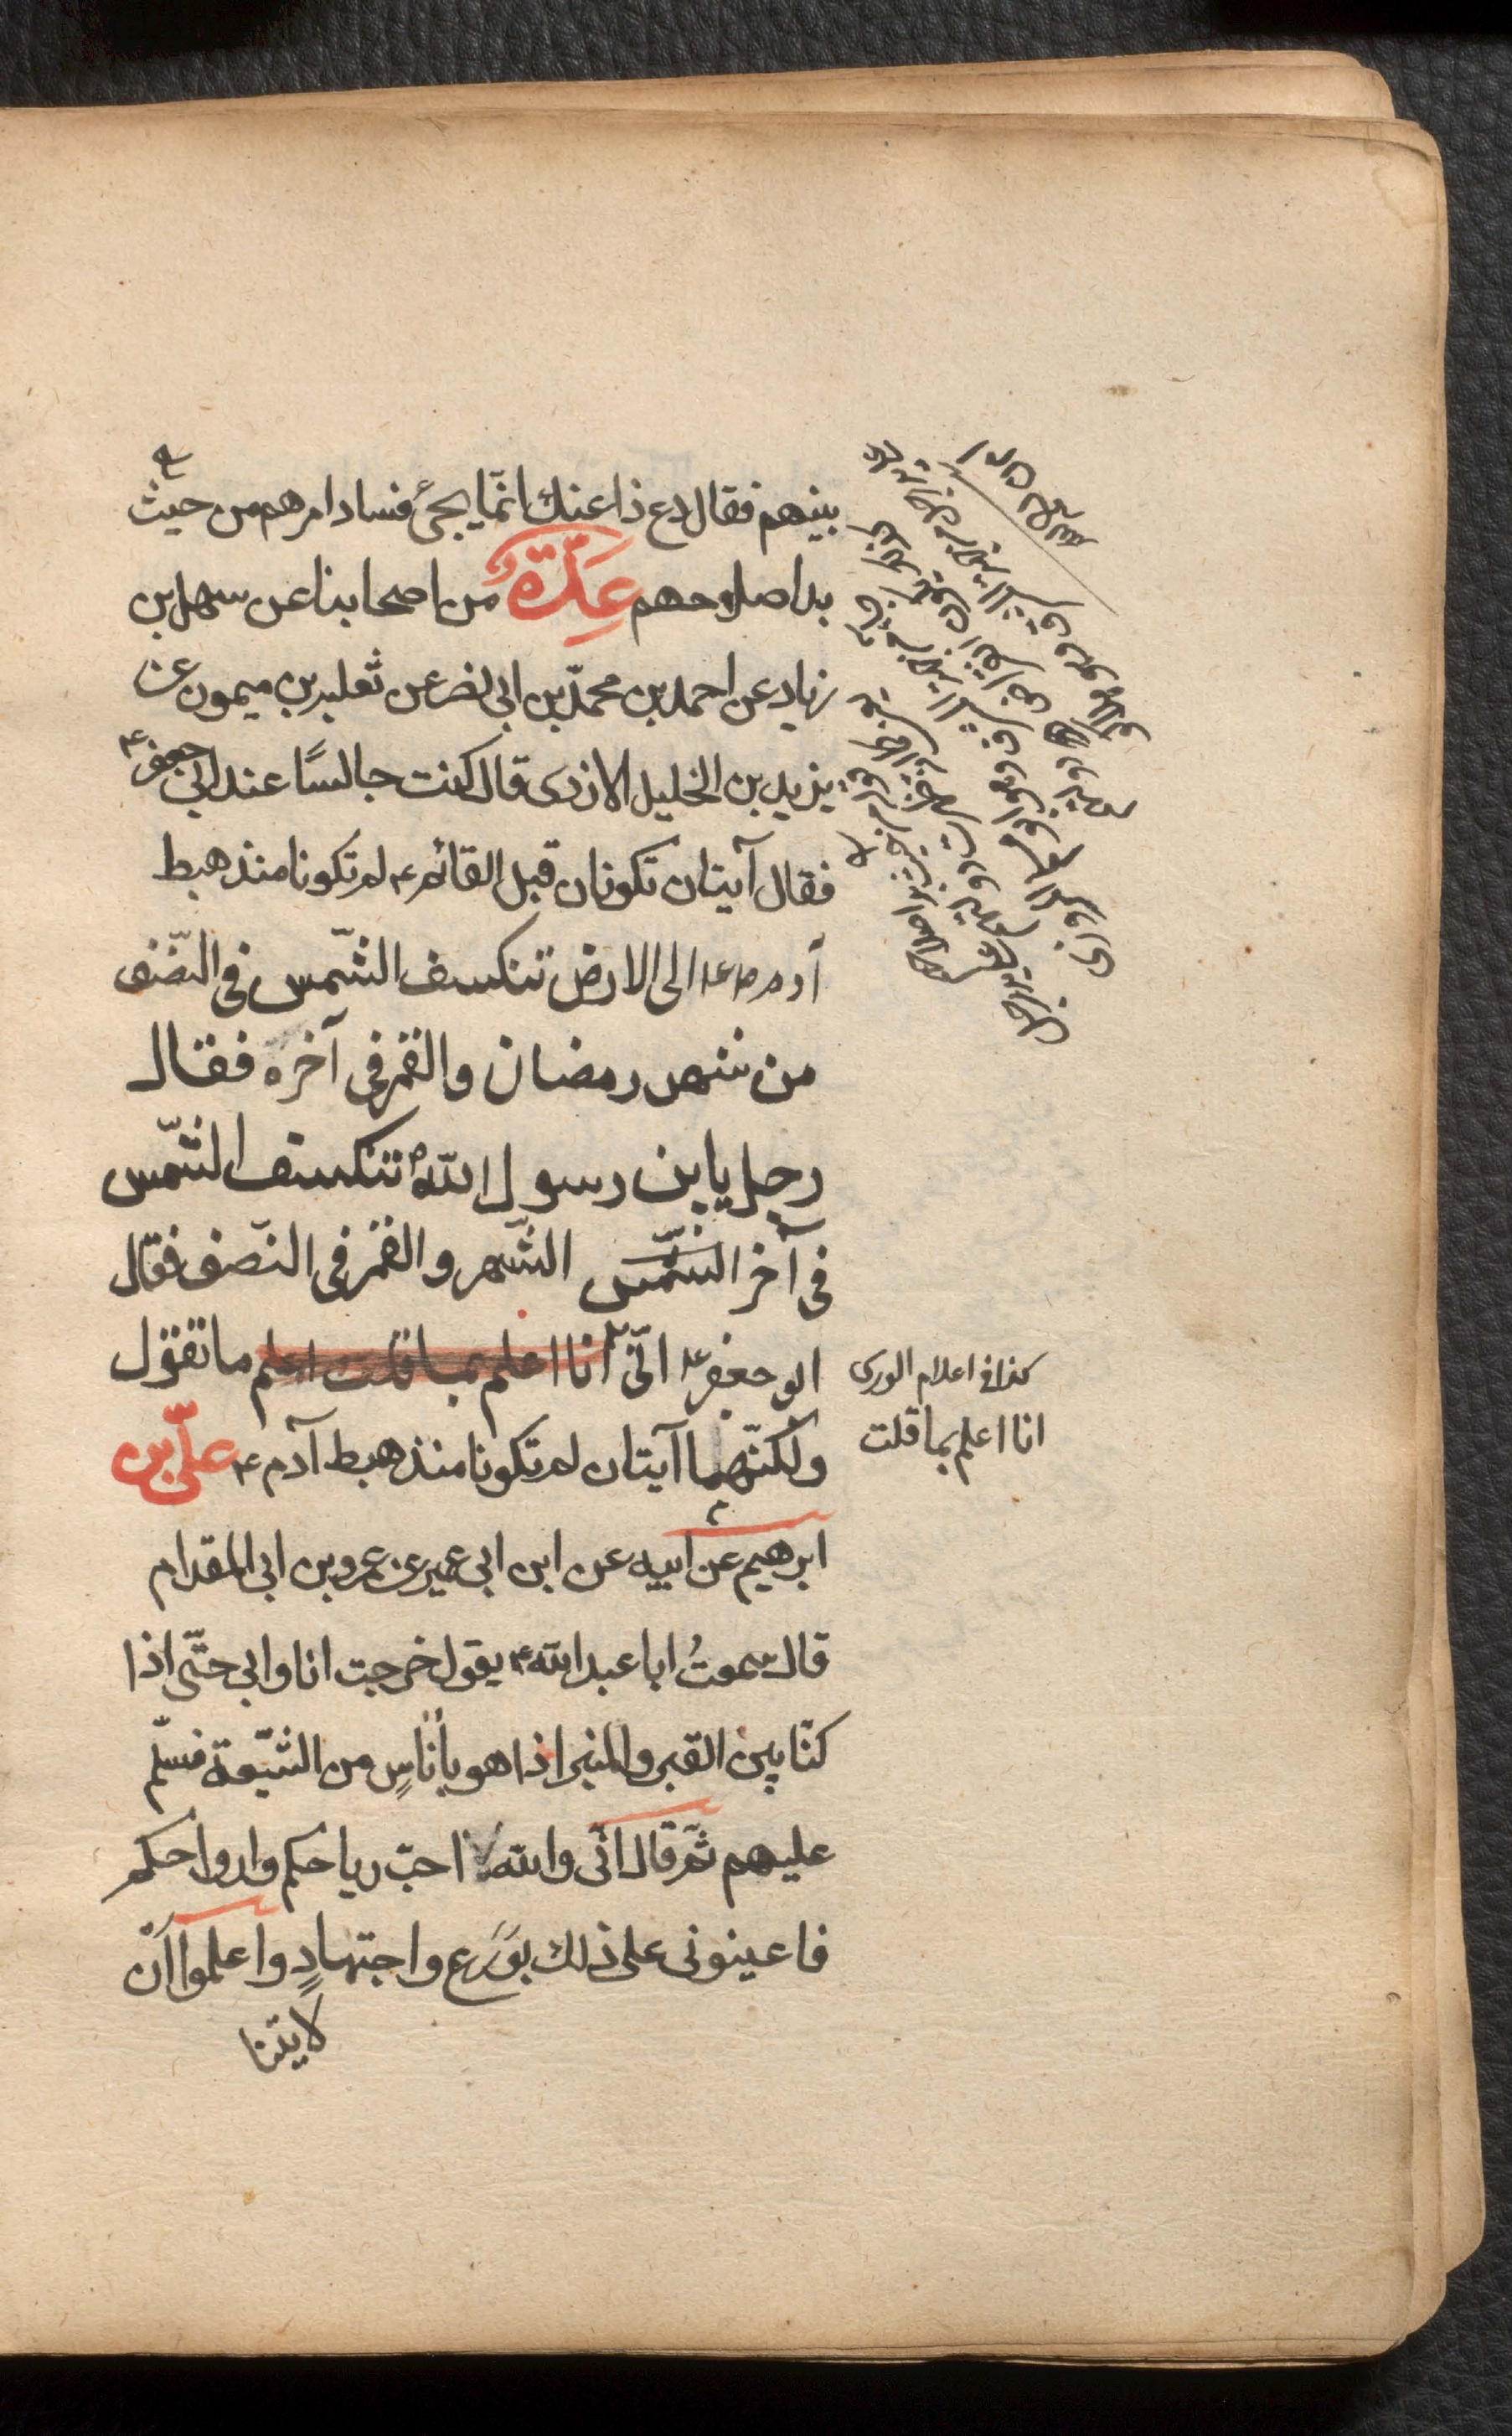 بينهم فقال دع ذا عنك انّما يجئ فساد امرهم من حيث
بدا صلاحهم عِدّةٌ من اصحابنا عن سهل بن
زياد عن احمد بن محمّد بن ابى نصر عن ثعلبه بن ميمون عن
يزيد بن الخليل الازدى قال كنت جالسًا عند ابى جعفر ع
فقال آيتان تكونان قبل القائم ع لم تكونا منذ هبط
آدم ع الى الارض تنكسف الشّمس فى النّصف
من شهر رمضان والقمر فى آخره فقال
رجل يا بن رسول الله ص تنكسف الشّمس
فى آخر الشّمس الشّهر والقمر فى النّصف فقال
ابو جعفر ع انّى انا اعلم بما قلت اعلم ما تقول
ولكنّهما آيتان لم تكونا منذ هبط آدم ع علىّ بن
ابرهيم عن ابيه عن ابن ابى عمير عن عمرو بن ابى المقدام
قال سمعتُ ابا عبد الله ع يقول خرجت انا وابى حتّى اذا
كنّا بين القبر والمنبر اذا هو بأناسٍ من الشّيعة فسلّم
عليهم ثمّ قال انّى والله لاحبّ رياحكم وارواحكم
فاعينونى على ذلك بوَرَع واجتهادٍ واعلموا انّ
لايتنا
كذا فى اعلام الورى
انا اعلم بما قلت